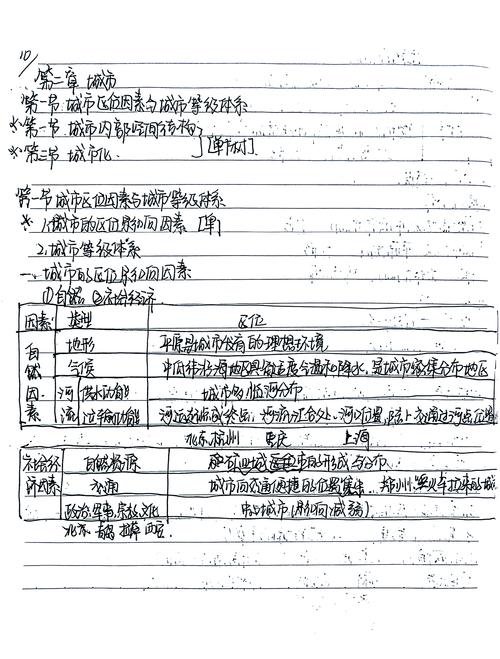 10/
第二章 城市
第一节 城市区位因素与城市等级体系
※第二节 城市内部空间结构
※第三节 城市化 [单 材].
第一节 城市区位因素与城市等级体系
※ 1.城市的区位影响因素 [单]
2.城市等级体系
一、城市的区位影响因素
①自然 ②社会经济
因素 类型 区位
自然因素 地形 平原是城市发育的理想环境
气候 中低纬沿海地区具有适度气温和降水,是城市密集分布地区
河流 供水功能 城市的临河分布
运输功能 河运的起点或终点,河流汇合处、河口位置
北京、杭州 重庆 上海
社会经济因素 自然资源 矿业城市的形成与分布
交通 城市向交通便捷的位置集聚 郑州:火车拉来的城
政治、军事、宗教、文化 中心城市(影响减弱)
北京 拉萨